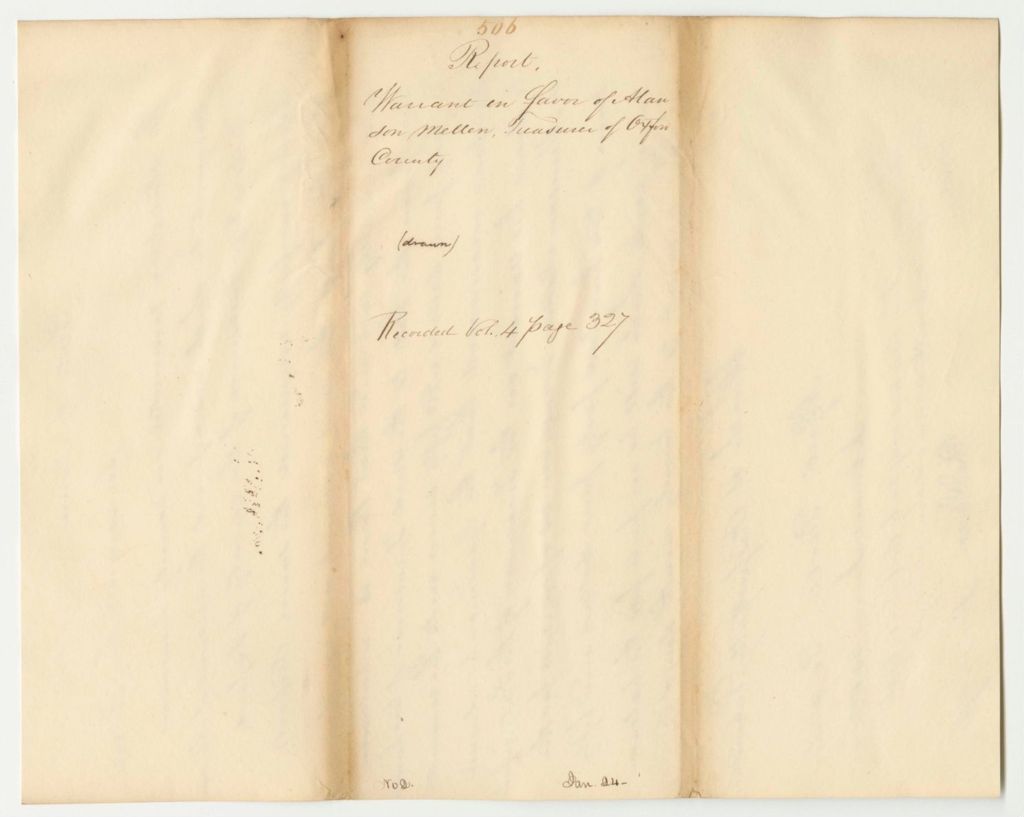 506
Report.
Warrant in favor of Alan
son Mellen, Treasurer of Oxfor
County
(drawn)
Recorded Vol. 4 page 327
No 2.
Jan. 24-